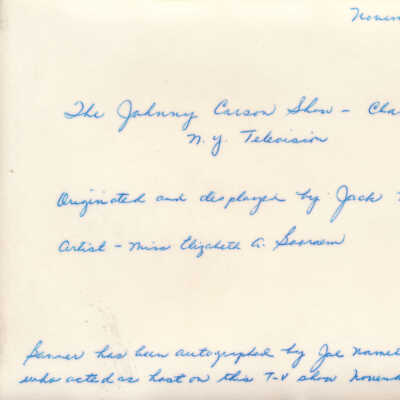 Novem
The Johnny Carson Show - Cha
N.Y. Television
Originated and displayed by Jack
Artist - Miss Elizabeth A.
Banner has been autographed by Joe Namat
who acted as host on this T-V show Novemb